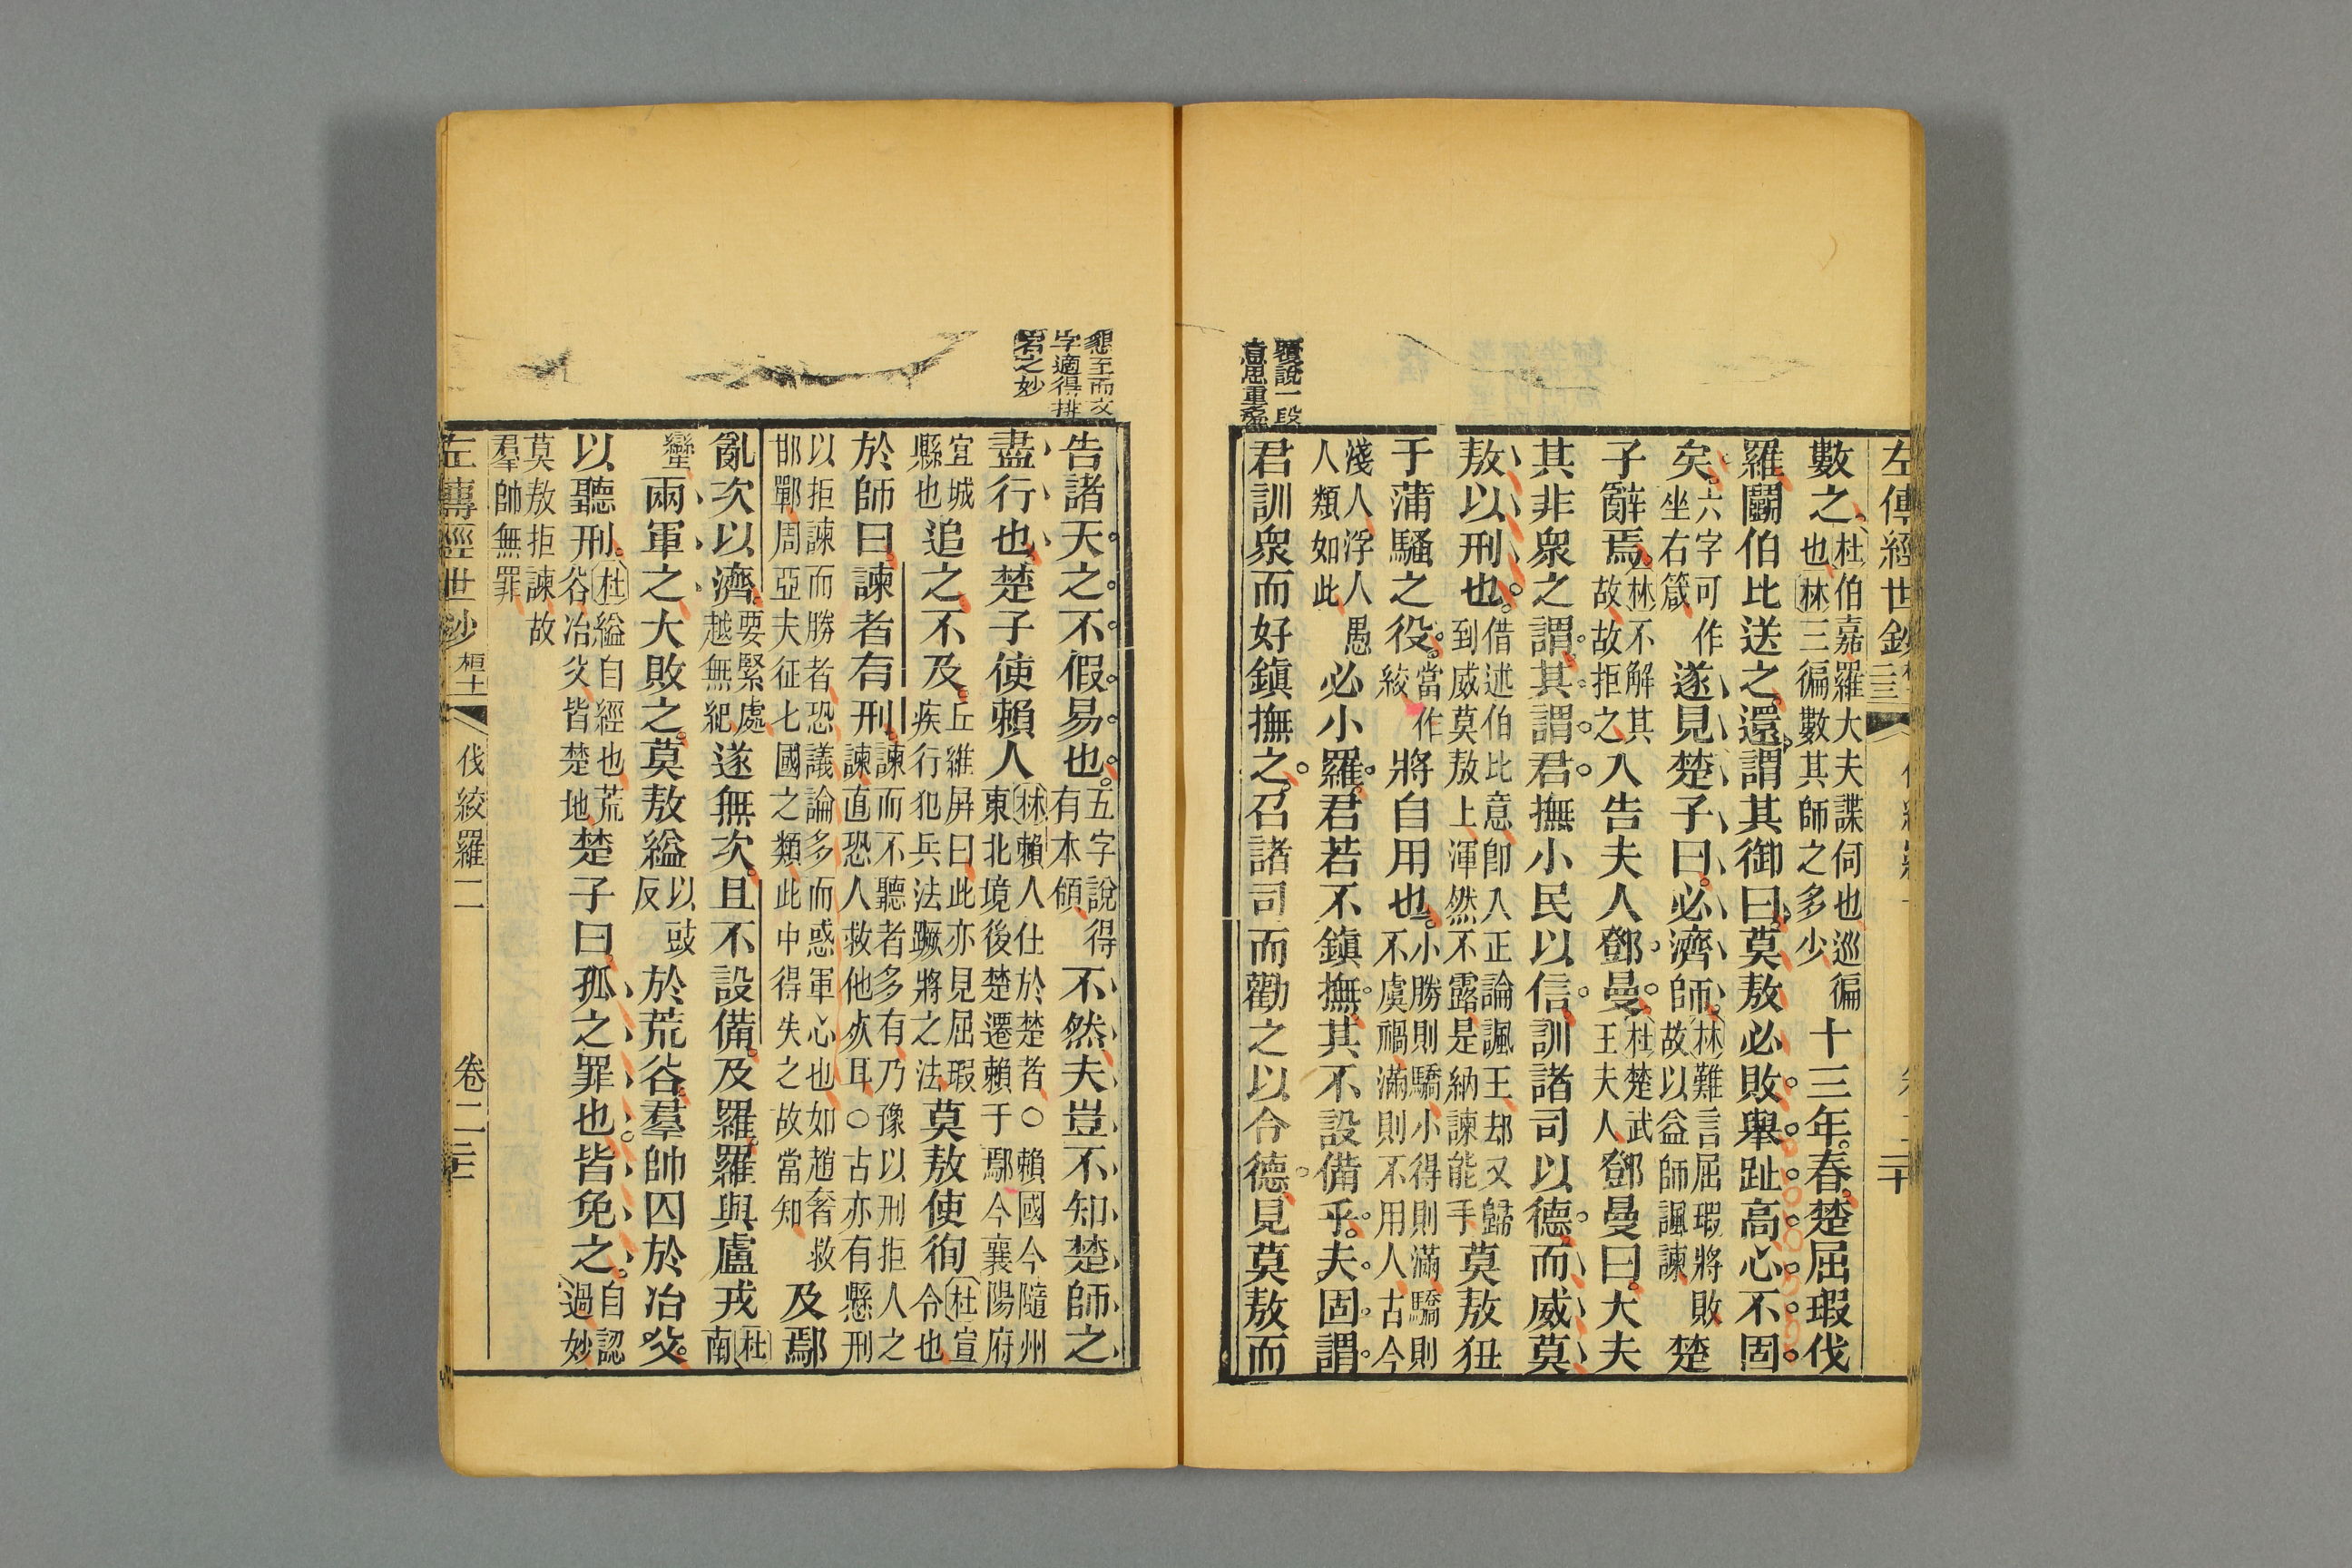 左傳經世鈔
數之杜伯嘉羅大夫諜伺也巡徧也林三徧數其師之多少十三年春楚屈瑕伐
羅鬬伯比送之還謂其御曰莫敖必敗舉趾高心不固
矣六字可作坐右箴遂見楚子曰必濟師林難言屈瑕將敗故以益師諷諫楚
子辭焉林不解其故故拒之入告夫人鄧曼杜楚武王夫人鄧曼曰大夫
其非衆之謂其謂君撫小民以信訓諸司以德而威莫
敖以刑也借述伯比意卽入正論諷王却又歸到威莫敖上渾然不露是納諫能手莫敖狃
于蒲騷之役當作絞將自用也小勝則驕小得則滿驕則不虞禍滿則不用人古今
淺人浮人愚人類如此必小羅君若不鎮撫其不設備乎夫固謂
君訓衆而好鎮撫之召諸司而勸之以令德見莫敖而
覆說一段
意思重
懇至而文
字適得排
之妙
告諸天之不假易也五字說得有本領不然夫豈不知楚師之
盡行也楚子使賴人林賴人仕於楚者○賴國今隨州東北境後楚遷賴于鄢今襄陽府
宜城縣也追之不及丘維屏曰此亦見屈瑕疾行犯兵法蹶將之法莫敖使徇杜宣令也
於師曰諫者有刑諫而不聽者多有乃豫以刑拒人之諫直恐人救他死耳○古亦有懸刑
以拒諫而勝者恐議論多而惑軍心也如趙奢救邯鄲周亞夫征七國之類此中得失之故當知及鄢
亂次以濟要緊處越無紀遂無次且不設備及羅羅與盧戎杜南
蠻兩軍之大敗之莫敖縊以豉反於荒谷羣帥囚於冶父
以聽刑杜縊自經也荒谷冶父皆楚地楚子曰孤之罪也皆免之自認過妙
莫敖拒諫故羣帥無罪
左傳經世鈔 桓十三 伐絞羅二 卷二